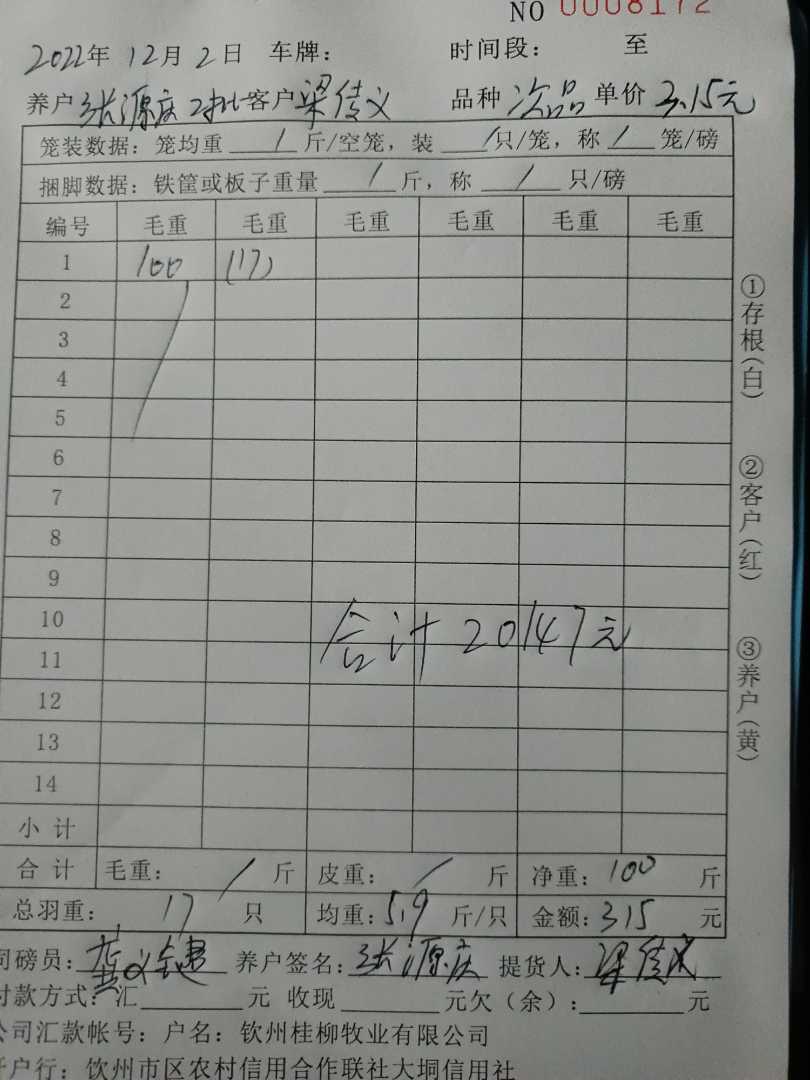 NO 0008172
2022年 12月 2日 车牌： 时间段： 至
养户 张源庆 2批 客户 梁传义 品种 次品 单价 3.15元
笼装数据：笼均重 / 斤/空笼，装 / 只/笼，称 / 笼/磅
捆脚数据：铁筐或板子重量 / 斤，称 / 只/磅
编号 毛重 毛重 毛重 毛重 毛重 毛重
1 100 (17)
2
3
4
5
6
7
8
9
10
合计 20147元
11
12
13
14
小计
合计 毛重： / 斤 皮重： / 斤 净重：100 斤
总羽重： 17 只 均重：5.9 斤/只 金额：315 元
司磅员： 养户签名：张源庆 提货人：梁传义
付款方式：汇 元 收现 元欠（余）： 元
公司汇款帐号：户名：钦州桂柳牧业有限公司
开户行：钦州市区农村信用合作联社大垌信用社
①存根(白)
②客户(红)
③养户(黄)